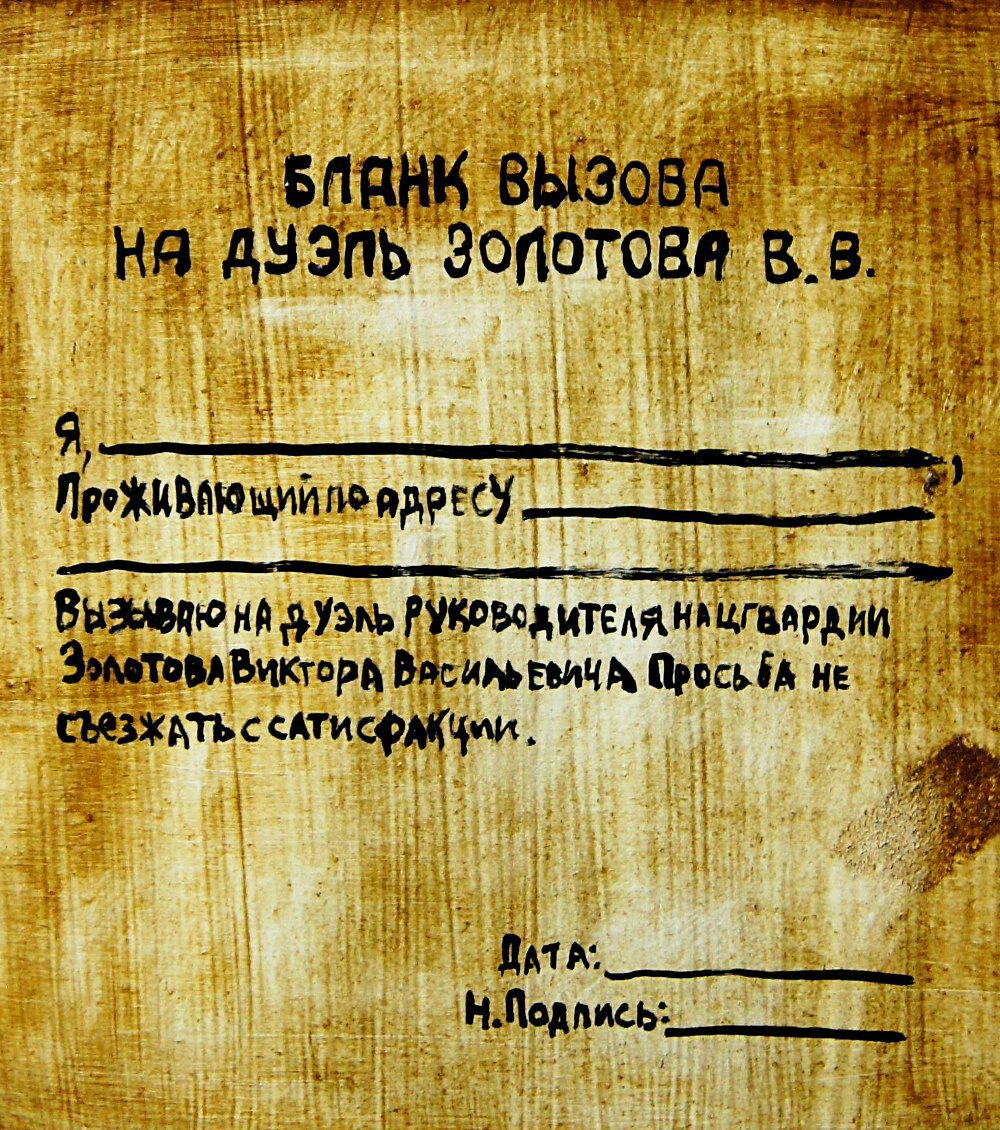 БЛАНК ВЫЗОВА
НА ДУЭЛЬ ЗОЛОТОВА В.В.
Я, ,
Проживающий по адресу
Вызываю на дуэль руководителя нацгвардии
Золотова Виктора Васильевича Просьба не
съезжать с сатисфакции.
Дата:
Н.Подпись: